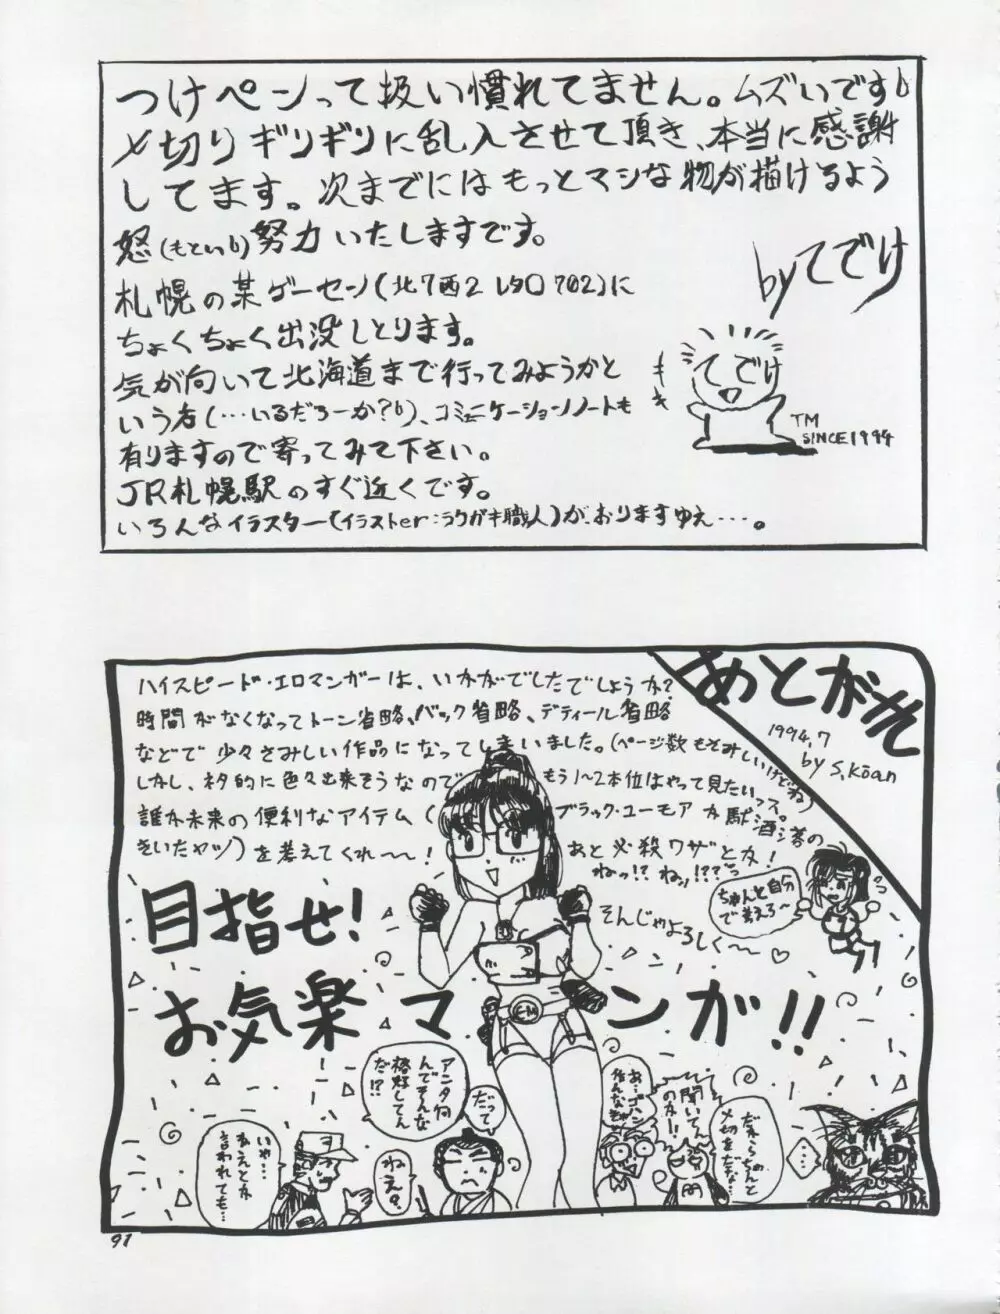 つけペンって扱い慣れてません。ムズいです
〆切りギリギリに乱入させて頂き、本当に感謝
してます。次までにはもっとマシな物が描けるよう
怒(もとい)努力いたしますです。
byてでけ
札幌の某ゲーセン(北7西2 レタロ702)に
ちょくちょく出没しとります。
気が向いて北海道まで行ってみようかと
いう者(…いるだろーか?)、コミュニケーションノートも
有りますので寄ってみて下さい。
JR札幌駅のすぐ近くです。
いろんなイラスター(イラストer:ラクガキ職人)が、おりますゆえ…。
てでけ
TM
SINCE1994
あとがき
1994.7
by S.Kōan
ハイスピード・エロマンガーは、いかがでしたでしょうか?
時間がなくなってトーン省略、バック省略、ディティール省略
などで少々さみしい作品になってしまいました。(ページ数もさみしいけどね)
しかし、ネタ的に色々出来そうなので もう1~2本位はやって見たいっス。
誰か未来の便利なアイテム(ブラック・ユーモアか駄洒落の
きいたヤツ)を考えてくれ~~!
あと必殺ワザとか!
ねっ!?ねッ!??
そんじゃよろしく~~♡
ちゃんと自分
で考えろ~
目指せ!
お気楽マンガ!!
アンタ何
んでそんな
格好してん
だ!?
だって
ねえ。
いや…
ねえとか
言われても…
あ…ゴハン
聞いてん
のか!!
だからちゃんと
〆切をだな…
……
91